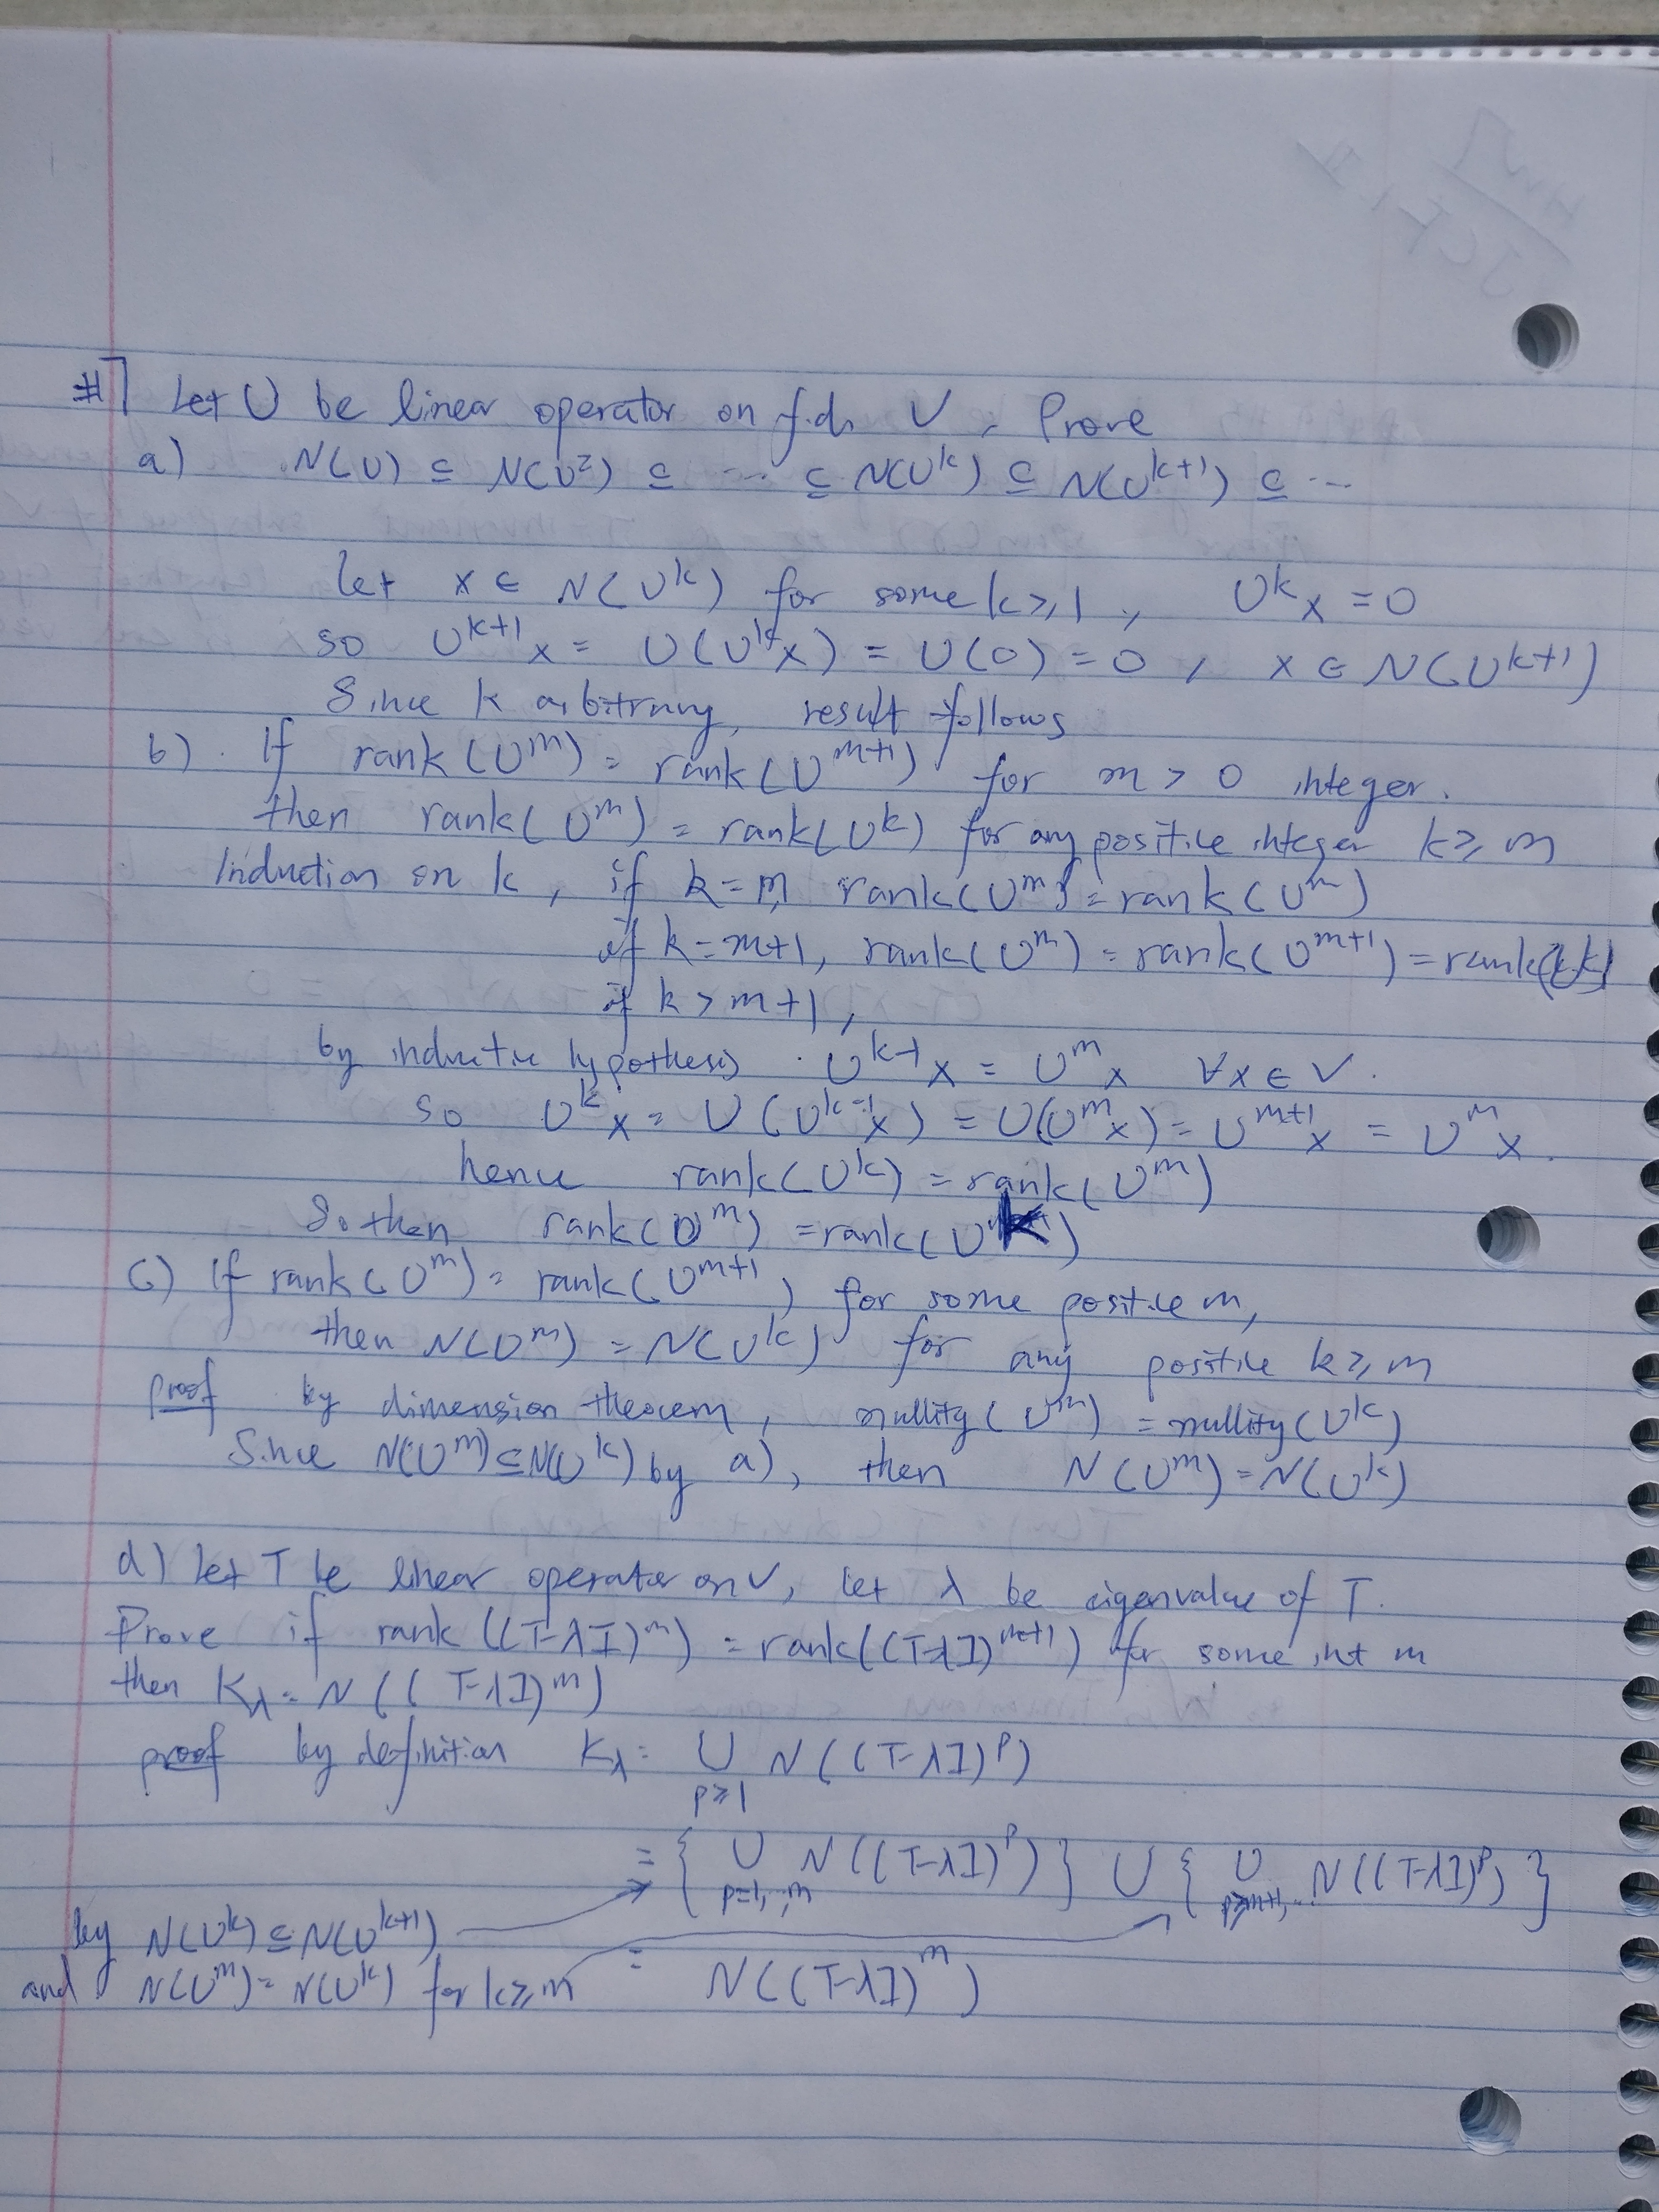 #7 Let U be linear operator on f.d. V. Prove
a) N(U) ⊆ N(U²) ⊆ ... ⊆ N(U^k) ⊆ N(U^{k+1}) ⊆ ...
let x ∈ N(U^k) for some k ≥ 1, U^k x = 0
so U^{k+1} x = U(U^k x) = U(0) = 0, x ∈ N(U^{k+1})
Since k arbitrary, result follows
b) If rank(U^m) = rank(U^{m+1}) for m > 0 integer.
then rank(U^m) = rank(U^k) for any positive integer k ≥ m
Induction on k, if k = m, rank(U^m) = rank(U^m)
if k = m+1, rank(U^m) = rank(U^{m+1}) = rank(U^k)
if k > m+1,
by inductive hypothesis U^{k-1} x = U^m x ∀x ∈ V.
so U^k x = U(U^{k-1} x) = U(U^m x) = U^{m+1} x = U^m x.
hence rank(U^k) = rank(U^m)
So then rank(U^m) = rank(U^k)
c) If rank(U^m) = rank(U^{m+1}) for some positive m,
then N(U^m) = N(U^k) for any positive k ≥ m
proof by dimension theorem, nullity(U^m) = nullity(U^k)
Since N(U^m) ⊆ N(U^k) by a), then N(U^m) = N(U^k)
d) Let T be linear operator on V, let λ be eigenvalue of T.
Prove if rank((T-λI)^m) = rank((T-λI)^{m+1}) for some int m
then K_λ = N((T-λI)^m)
proof by definition K_λ = ∪ N((T-λI)^p)
p≥1
= { ∪ N((T-λI)^p) } ∪ { ∪ N((T-λI)^p) }
p=1,..,m p≥m+1,..
by N(U^k) ⊆ N(U^{k+1})
and N(U^m) = N(U^k) for k ≥ m = N((T-λI)^m)